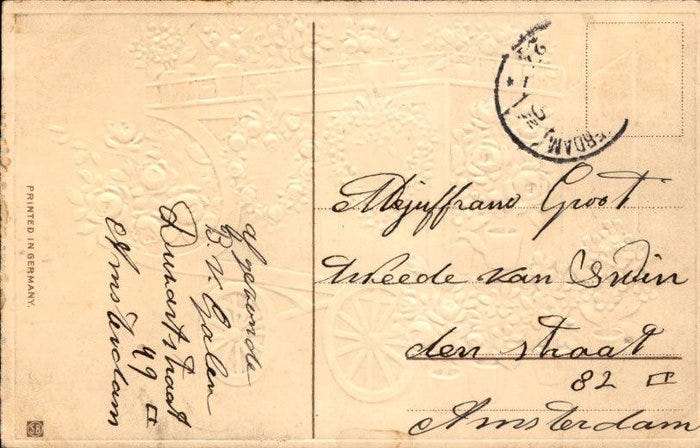 PRINTED IN GERMANY.
SB
afzende
B. v Galen
Dusartstraat
49 II
Amsterdam
ERDAM
Mejuffrauw Groot
tweede van Swin
den straat
82 II
Amsterdam